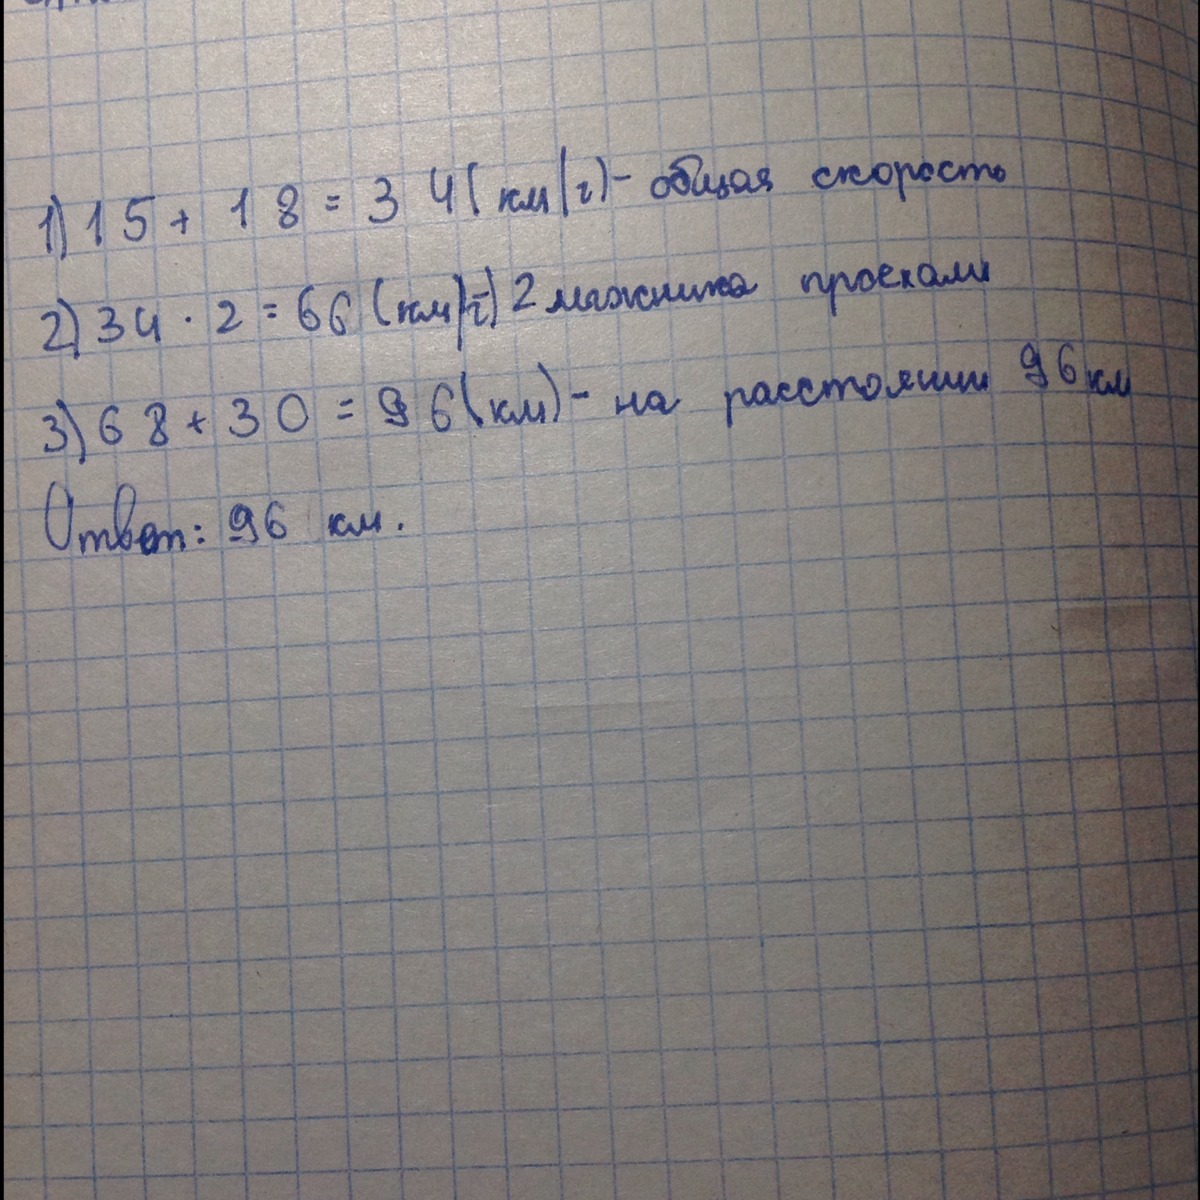 1) 15 + 18 = 34 (км/ч) - общая скорость
2) 34 · 2 = 66 (км/ч) 2 лыжника проехали
3) 68 + 30 = 96 (км) - на расстоянии 96 км
Ответ: 96 км.